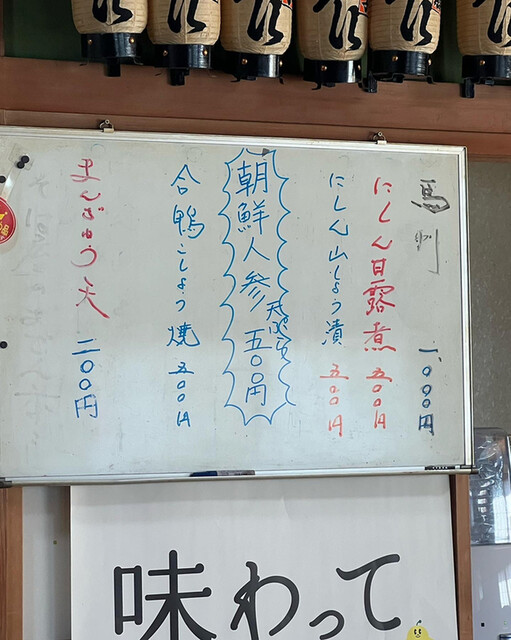 馬刺 一、000円
にしん甘露煮 五00円
にしん山しょう漬 五00円
朝鮮人参 天ぷら 五00円
合鴨こしょう焼 五00円
まんぢゅう天 二00円
味わって